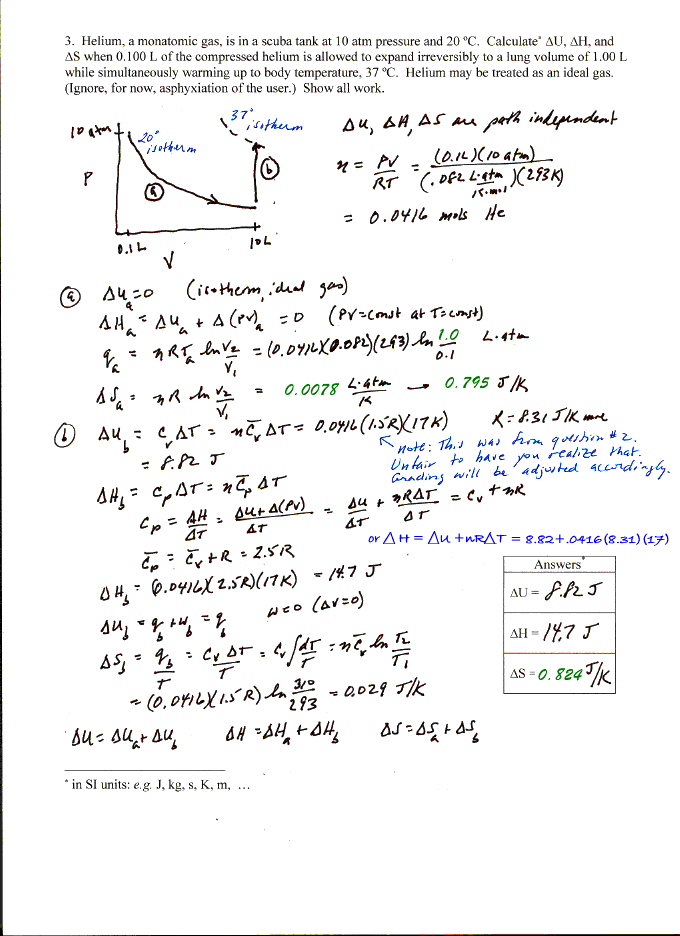 3. Helium, a monatomic gas, is in a scuba tank at 10 atm pressure and 20 ºC. Calculate* ΔU, ΔH, and
ΔS when 0.100 L of the compressed helium is allowed to expand irreversibly to a lung volume of 1.00 L
while simultaneously warming up to body temperature, 37 ºC. Helium may be treated as an ideal gas.
(Ignore, for now, asphyxiation of the user.) Show all work.
10 atm
20° isotherm
37° isotherm
P
ⓐ
ⓑ
0.1 L
10 L
V
ΔU, ΔH, ΔS are path independent
n = PV/RT = (0.1L)(10 atm)/(.082 L·atm/K·mol)(293K)
= 0.0416 mols He
ⓐ ΔU_a = 0 (isotherm, ideal gas)
ΔH_a = ΔU_a + Δ(PV)_a = 0 (PV=const at T=const)
q_a = nRT_a ln V₂/V₁ = (0.0416)(0.082)(293) ln 1.0/0.1 L·atm
ΔS_a = nR ln V₂/V₁ = 0.0078 L·atm/K → 0.795 J/K
ⓑ ΔU_b = C_v ΔT = nC̅_v ΔT = 0.0416 (1.5R)(17K) R = 8.31 J/K mole
= 8.82 J
note: This was from question #2.
Unfair to have you realize that.
Grading will be adjusted accordingly.
ΔH_b = C_p ΔT = nC̅_p ΔT
C_p = ΔH/ΔT = ΔU+Δ(PV)/ΔT = ΔU/ΔT + nRΔT/ΔT = C_v + nR
or ΔH = ΔU + nRΔT = 8.82+.0416(8.31)(17)
C̅_p = C̅_v + R = 2.5R
ΔH_b = (0.0416)(2.5R)(17K) = 14.7 J
ΔU_b = q_b + w_b = q_b w=0 (ΔV=0)
ΔS_b = q_b/T = C_v ΔT/T = C_v ∫dT/T = nC̅_v ln T₂/T₁
= (0.0416)(1.5R) ln 310/293 = 0.029 J/K
Answers*
ΔU = 8.82 J
ΔH = 14.7 J
ΔS = 0.824 J/K
ΔU = ΔU_a + ΔU_b ΔH = ΔH_a + ΔH_b ΔS = ΔS_a + ΔS_b
* in SI units: e.g. J, kg, s, K, m, …